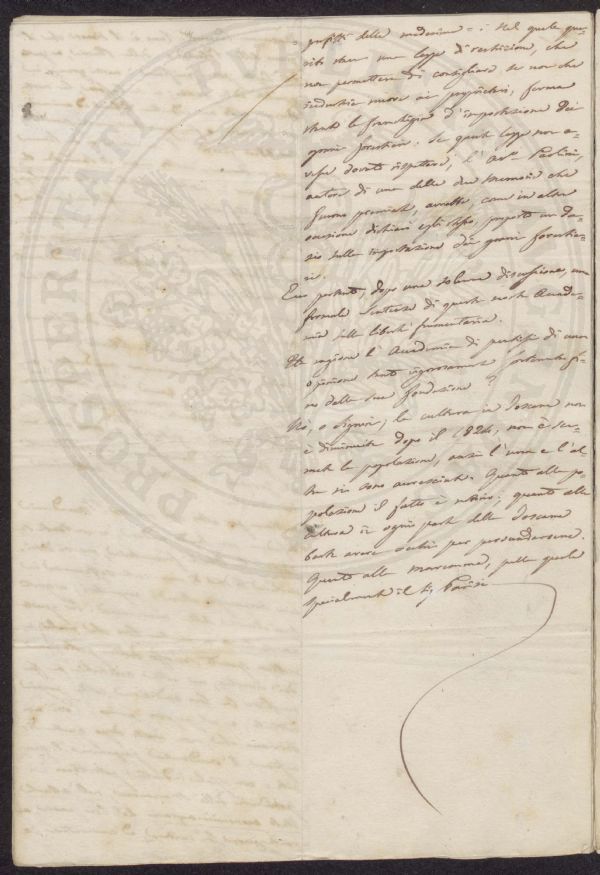 profitti delle medesime = : Nel quale que-
sito una legge di restrizione, che
non permetteva di consigliare, se non che
industrie nuove ai proprietari, ferma
stante la franchigia d'importazione dei
grani forestieri. Se questa legge non a-
vesse dovuto rispettarsi, l' Avv. Paolini,
autore di una delle due memorie che
furono premiate, avrebbe, come in altra
occasione dichiarò egli stesso, proposto un da-
zio sulla importazione dei grani forestie-
ri.
Ecco pertanto, dopo una solenne discussione, una
formale sentenza di questa nostra Accade-
mia sulla libertà frumentaria.
Ha ragione l' Accademia di pentirsi di una
opinione tanto vigorosamente sostenuta fi-
no dalla sua fondazione?
No, o Signori, la cultura in Toscana non
è diminuita dopo il 1824; non è sce-
mata la popolazione, anzi l' una e l' al-
tra si sono accresciute. Quanto alla po-
polazione il fatto è notorio; quanto alla
cultura in ogni parte della Toscana
basta avere occhi per persuadersene.
Quanto alle maremme, per le quali
specialmente il Sig.
PROSPERITATI PUBLICAE